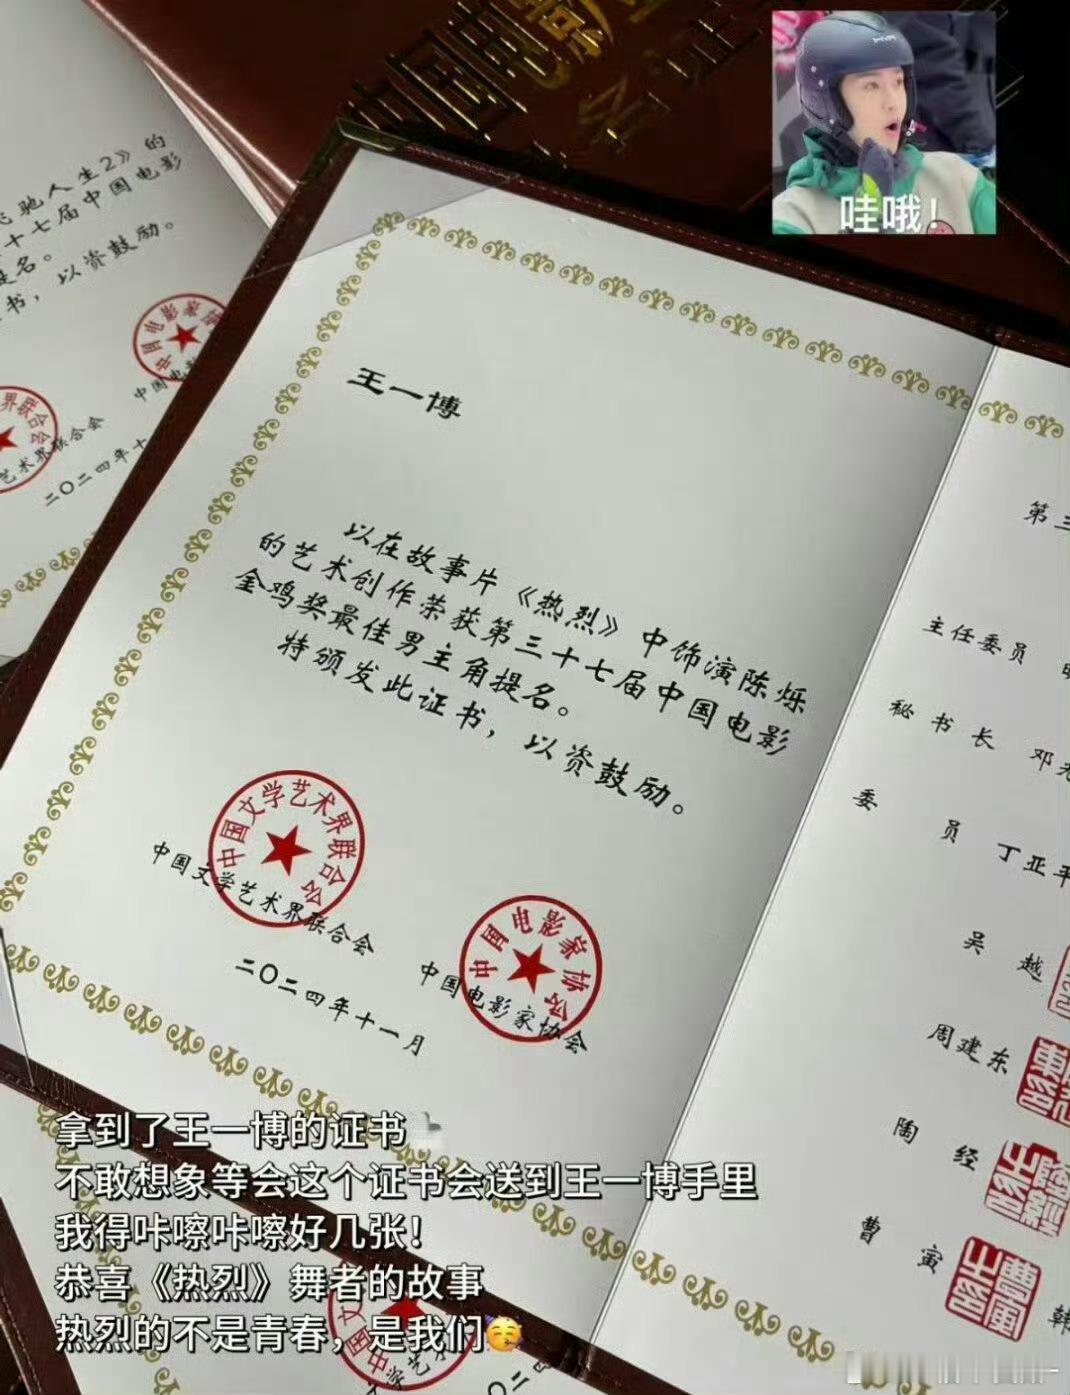 中国电影
哇哦！
驰人生2》的
十七届中国电影
提名。
书，以资鼓励。
中国电影家
界联合会
中国电影
艺术界联合会
二〇二四年十
王一博
以在故事片《热烈》中饰演陈烁
的艺术创作荣获第三十七届中国电影
金鸡奖最佳男主角提名。
特颁发此证书，以资鼓励。
中国文学艺术界联合会
中国文学艺术界联合会
二〇二四年十一月
中国电影家协会
中国电影家协会
第三
主任委员
秘书长 邓光
委员 丁亚平
吴越
周建东
陶经
曹寅
曹寅之印
韩
拿到了王一博的证书
不敢想象等会这个证书会送到王一博手里
我得咔嚓咔嚓好几张！
恭喜《热烈》舞者的故事
热烈的不是青春，是我们🥳